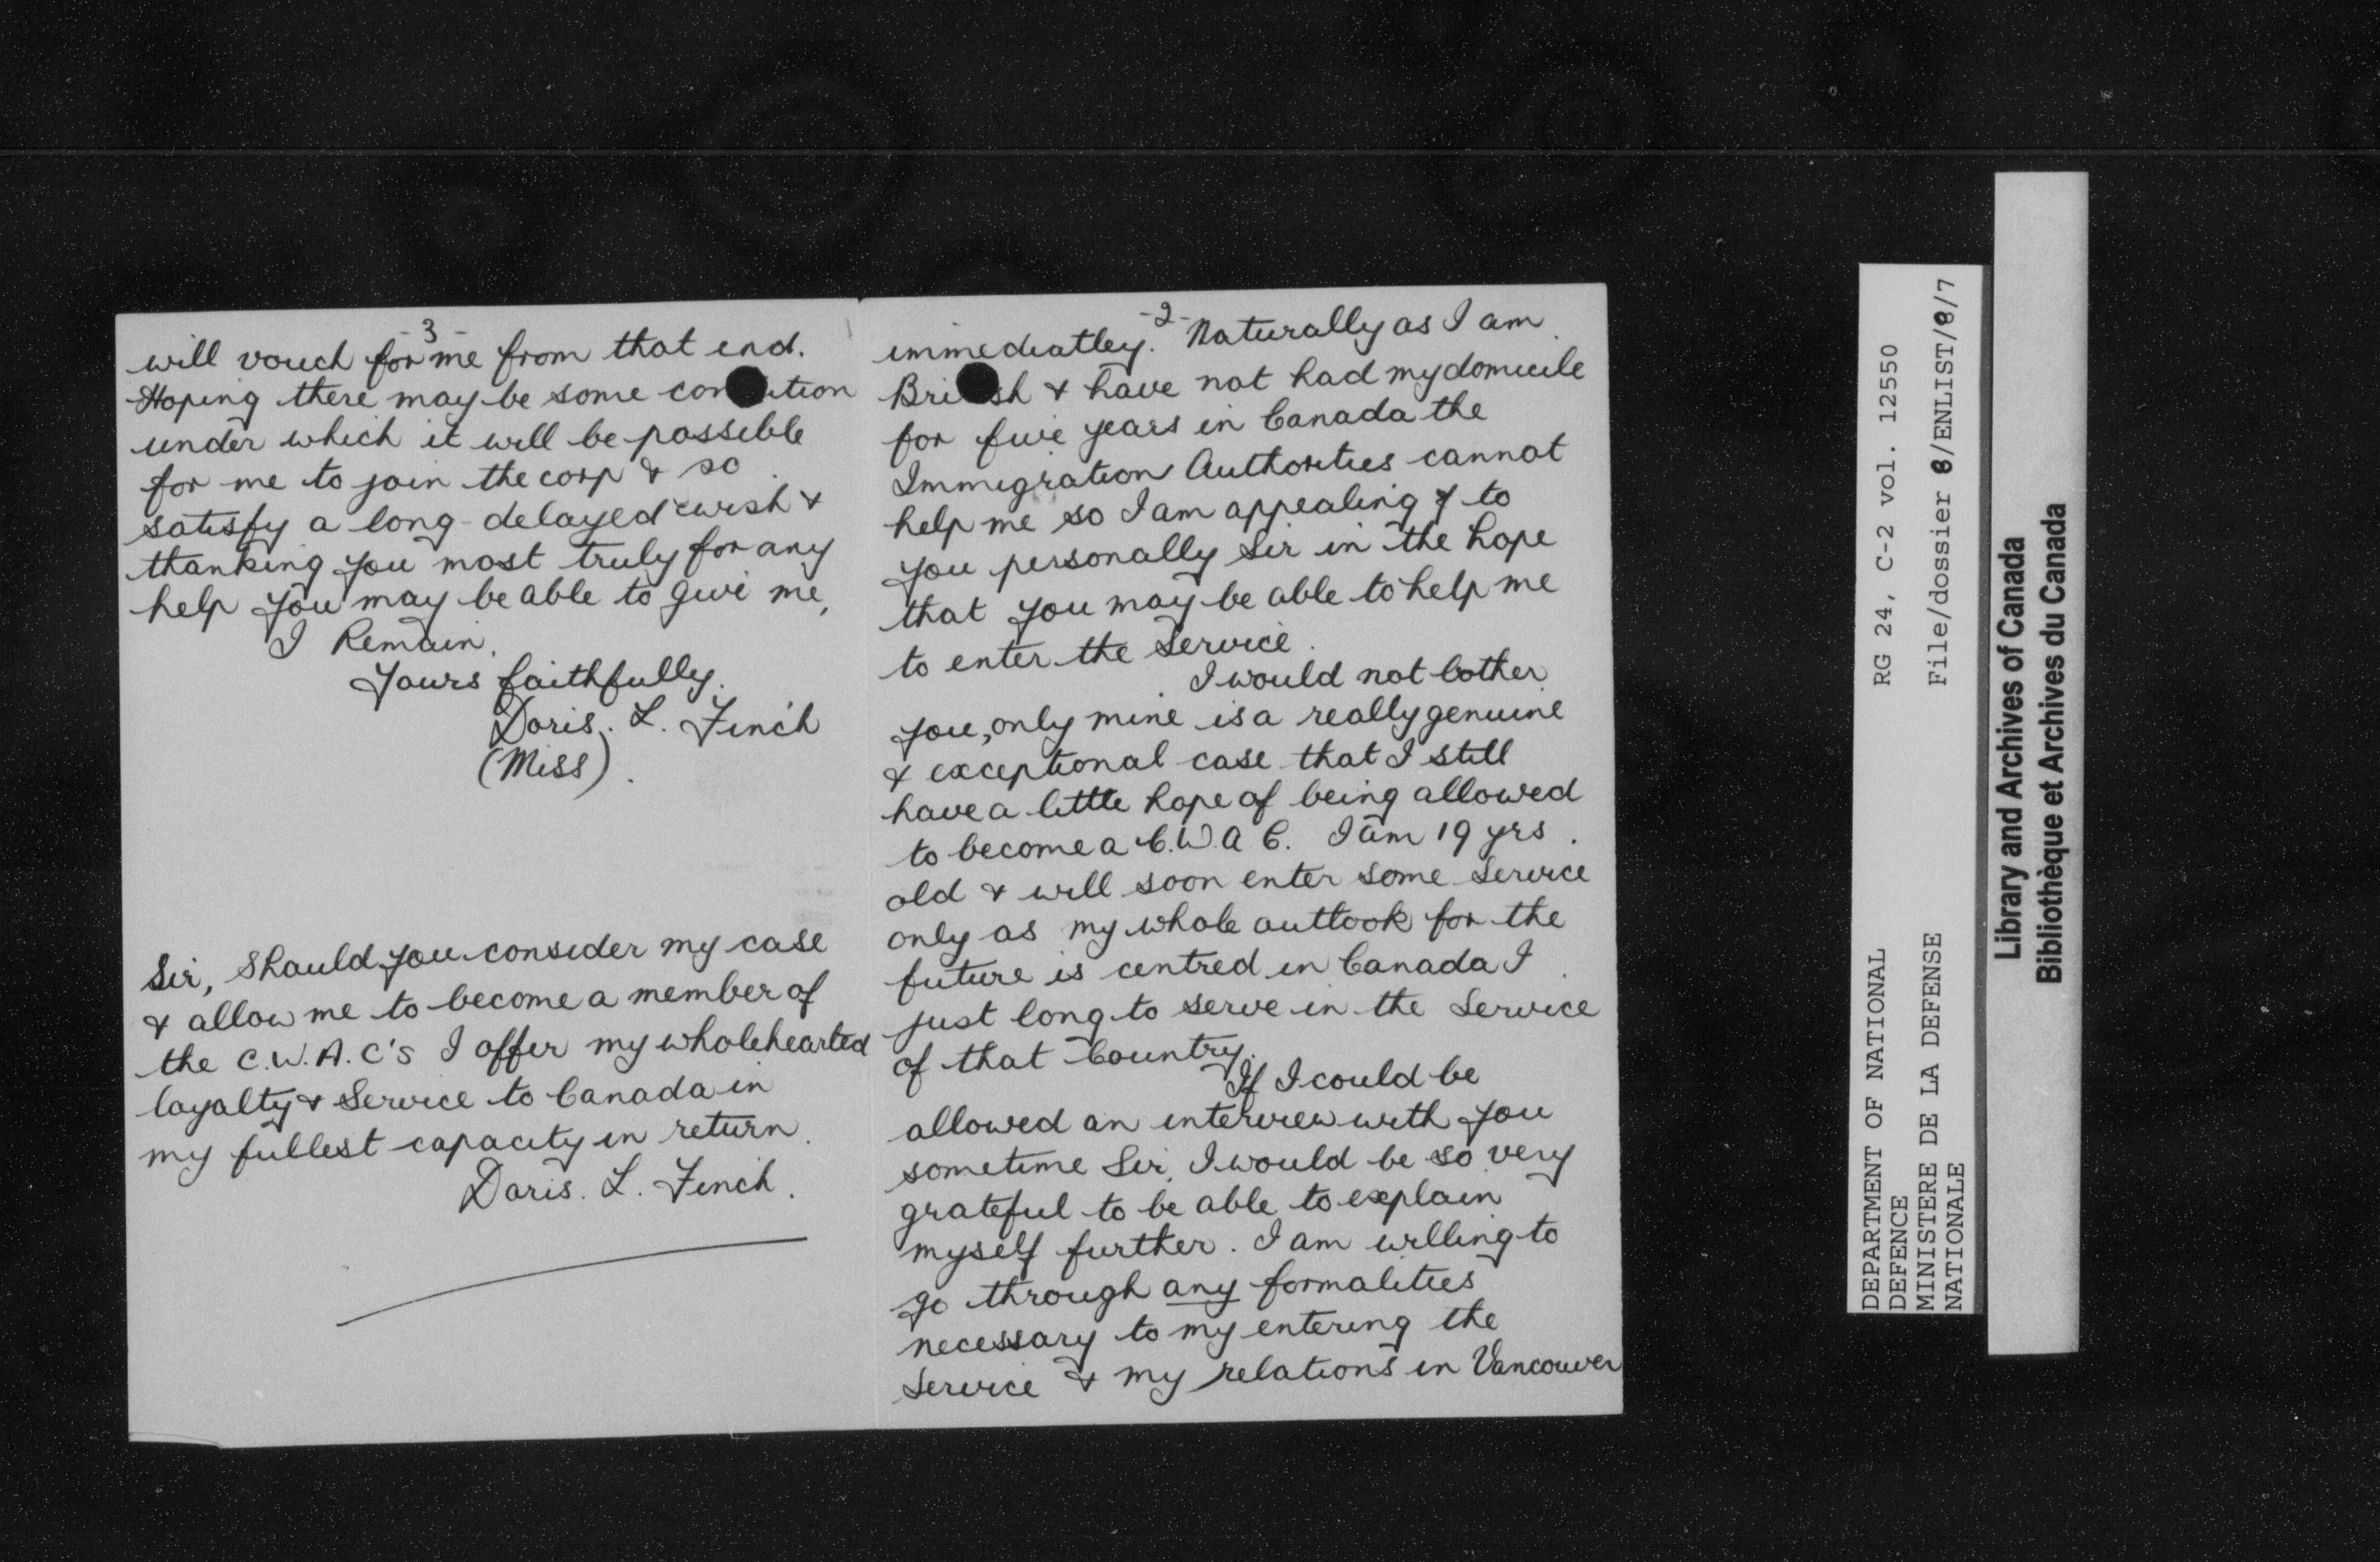 -3-
will vouch for me from that end.
Hoping there may be some con ition
under which it will be possible
for me to join the corp & so
satisfy a long-delayed wish &
thanking you most truly for any
help you may be able to give me,
I Remain,
Yours faithfully.
Doris. L. Finch
(Miss).
Sir, Should you consider my case
& allow me to become a member of
the C.W.A.C's I offer my wholehearted
loyalty & Service to Canada in
my fullest capacity in return.
Doris. L. Finch.
-2-
immediatley. Naturally as I am
Bri sh & have not had my domicile
for five years in Canada the
Immigration Authorities cannot
help me so I am appealing to
you personally Sir in the hope
that you may be able to help me
to enter the Service.
I would not bother
you, only mine is a really genuine
& exceptional case that I still
have a little hope of being allowed
to become a C.W.A C. I am 19 yrs.
old & will soon enter some Service
only as my whole outlook for the
future is centred in Canada I
just long to serve in the Service
of that Country.
If I could be
allowed an interview with you
sometime Sir, I would be so very
grateful to be able to explain
myself further. I am willing to
go through any formalities
necessary to my entering the
Service & my relations in Vancouver
DEPARTMENT OF NATIONAL
DEFENCE
MINISTERE DE LA DEFENSE
NATIONALE
RG 24, C-2 vol. 12550
File/dossier 8/ENLIST/8/7
Library and Archives of Canada
Bibliothèque et Archives du Canada